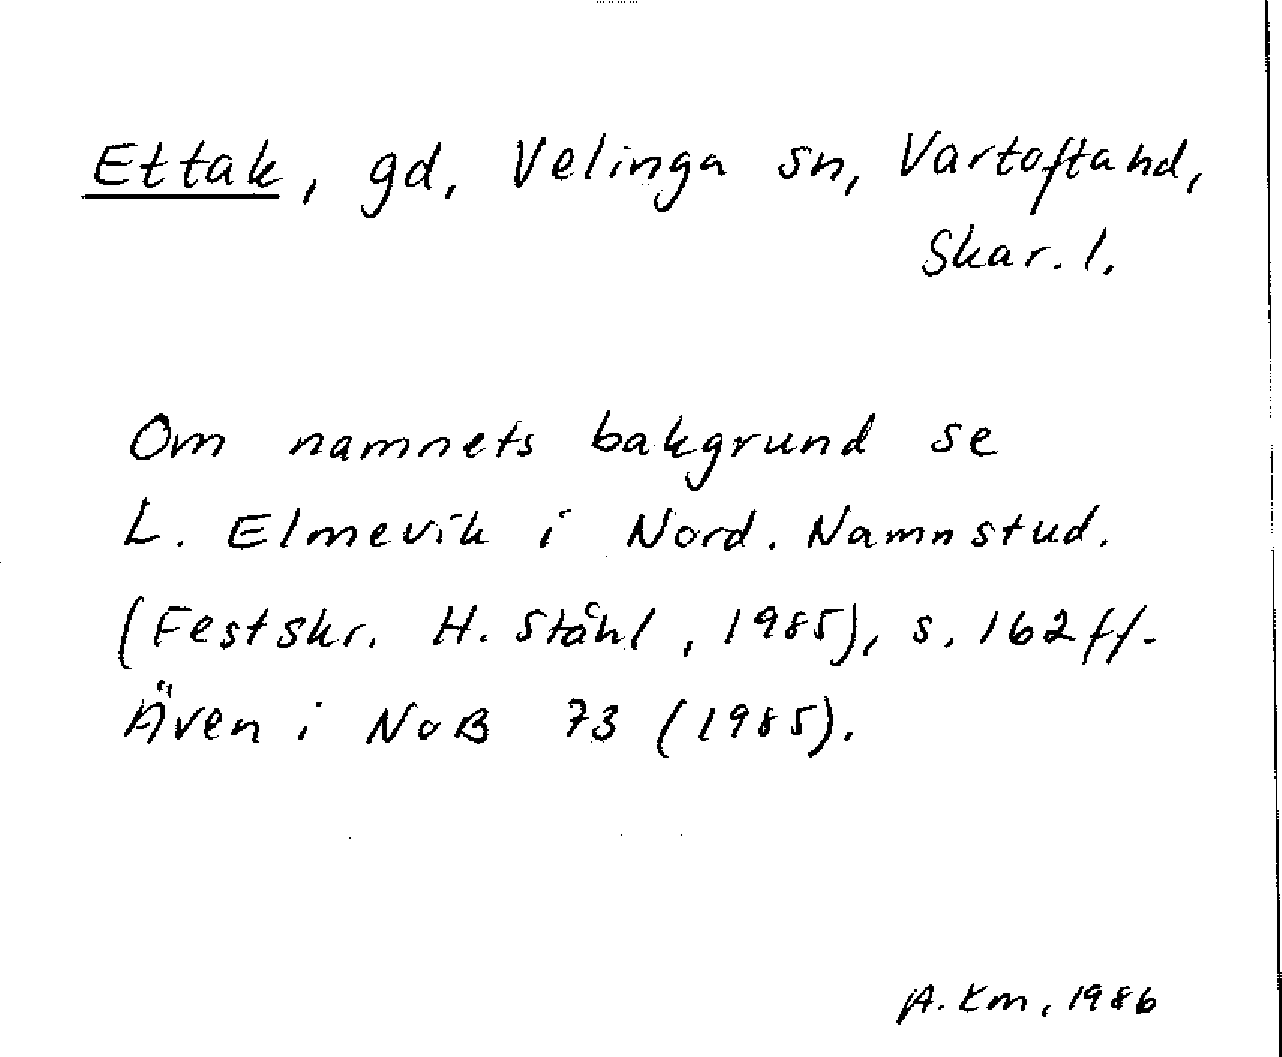 Ettak, gd, Velinga sn, Vartofta hd,
Skar. l.
Om namnets bakgrund se
L. Elmevik i Nord. Namnstud.
(Festskr. H. Ståhl, 1985), s. 162 ff.
Även i NoB 73 (1985).
A. Km, 1986